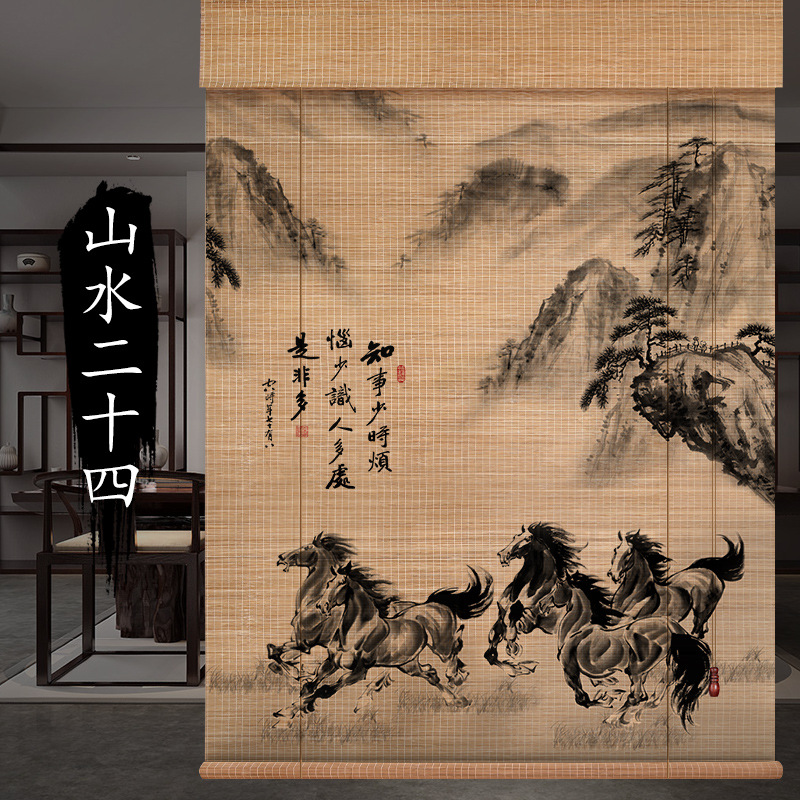 山水二十四
知事少時煩
惱少識人多處
是非多